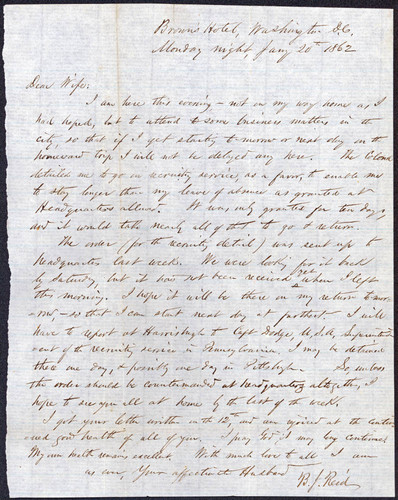 Brown's Hotel, Washington D.C.
Monday night, Jany 20th 1862
Dear Wife:
I am here this evening - not on my way home as I
had hoped, but to attend to some business matters in the
city, so that if I get started to-morrow or next day on the
homeward trip I will not be delayed any here. The Colonel
detailed me to go on recruiting service, as a favor, to enable me
to stay longer than my leave of absence as granted at
Headquarters allows. It was only granted for ten days
and it would take nearly all of that to go & return.
The order (for the recruiting detail) was sent up to
headquarters last week. We were looking for it back
by Saturday, but it had not been received yet when I left
this morning. I hope it will be there on my return to-mor-
row, - so that I can start next day at furthest. I will
have to report at Harrisburgh to Capt. Dodge, U.S.A., Superintend-
ent of the recruiting service in Pennsylvania, & may be detained
there one day, & possibly one day in Pittsburgh. So, unless
the order should be countermanded at headquarters altogether, I
hope to see you all at home by the last of the week.
I got your letter written on the 15th, and am rejoiced at the contin-
ued good health of all of you. I pray God it may long continue.
My own health remains excellent. With much love to all I am
as ever, Your affectionate Husband
B. J. Reid